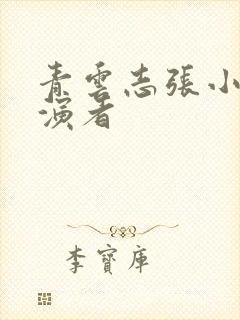 青雲志張小
演者
李寶庫